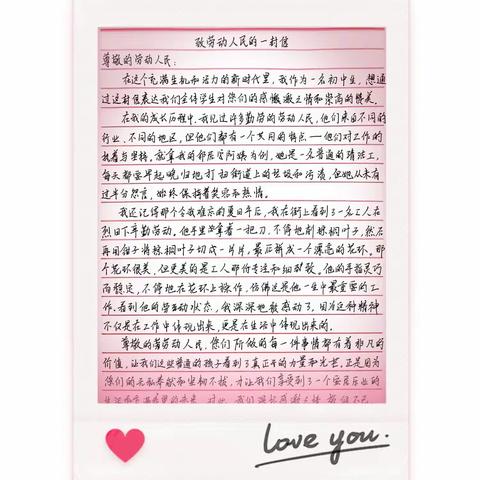 致劳动人民的一封信
尊敬的劳动人民：
在这个充满生机和活力的新时代里，我作为一名初中生，想通
过这封信表达我们全体学生对您们的感激之情和崇高的赞美。
在我的成长历程中，我见过许多勤劳的劳动人民，他们来自不同的
行业、不同的地区，但他们都有一个共同的特点——他们对工作的
执着与坚持。就拿我的邻居李阿姨为例，她是一名普通的清洁工，
每天都要早起晚归地打扫街道上的垃圾和污渍，但她从未有
过半分怨言，始终保持着笑容和热情。
我还记得那个令我难忘的夏日午后，我在街上看到了一名工人在
烈日下辛勤劳动。他手里拿着一把刀，不停地刺棕榈叶子，然后
再用钳子将棕榈叶子切成一片片，最后拼成一个漂亮的花环。那
个花环很美，但更美的是工人那份专注和细致。他的手指灵巧
而稳定，不停地在花环上操作，仿佛这是他一生中最重要的工
作。看到他的劳动状态，我深深地被感动了，因为这种精神
不仅是在工作中体现出来，更是在生活中体现出来的。
尊敬的劳动人民，您们所做的每一件事情都有着非凡的
价值，让我们这些普通的孩子看到了真正的力量和光芒。正是因为
您们的无私奉献和坚韧不拔，才让我们享受到了一个安居乐业的
love you.